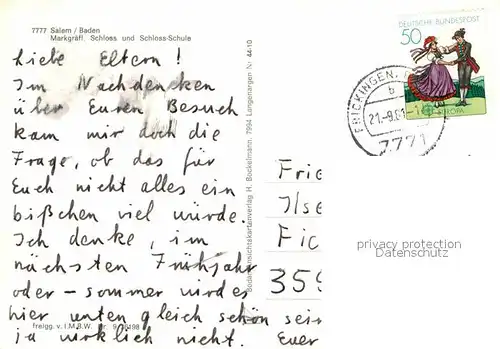 7777 Salem / Baden
Markgräfl. Schloss und Schloss-Schule
Liebe Eltern!
Im Nachdenken
über Euren Besuch
kam mir doch die
Frage, ob das für
Euch nicht alles ein
bißchen viel würde.
Ich denke, im
nächsten Frühjahr
oder – sommer wird es
hier unten gleich schön sein
ja wirklich nicht. Euer
freigg. v. I.M.B.W. Nr. 9
Bodan-Ansichtskartenverlag H. Bockelmann, 7994 Langenargen Nr. 44-10
DEUTSCHE BUNDESPOST
50
EUROPA
FRICKINGEN
b
21.-9.81
7771
Frie
Ilse
Fic
359
privacy protection
Datenschutz